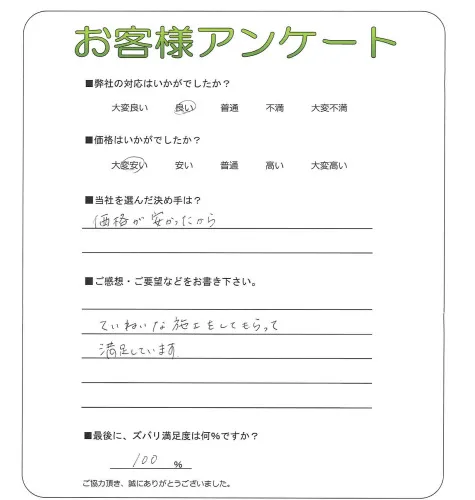 お客様アンケート
■弊社の対応はいかがでしたか？
大変良い 良い 普通 不満 大変不満
■価格はいかがでしたか？
大変安い 安い 普通 高い 大変高い
■当社を選んだ決め手は？
価格が安かったから
■ご感想・ご要望などをお書き下さい。
ていねいな施工をしてもらって
満足しています
■最後に、ズバリ満足度は何%ですか？
100 %
ご協力頂き、誠にありがとうございました。